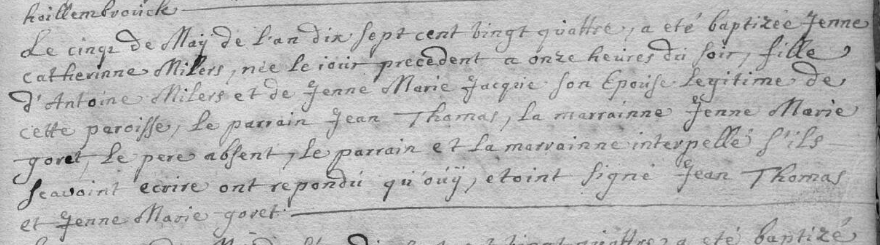 hoillembrouck
Le cinqe de Maÿ de L'an dix sept cent vingt quattre, a eté baptizée Jenne
Catherinne Milers, née le jour precedent a onze heures du soir, fille
d'Antoine Milers et de Jenne Marie Jacquie son Epouse Legitime de
cette paroisse, Le parrain Jean Thomas, La marrainne Jenne Marie
goret, Le pere absent, Le parrain et La marrainne interpellé s'ils
scavoint ecrire ont repondû qu'oüÿ, etoint signé Jean Thomas
et Jenne Marie goret.
vingt quattre a eté baptizé